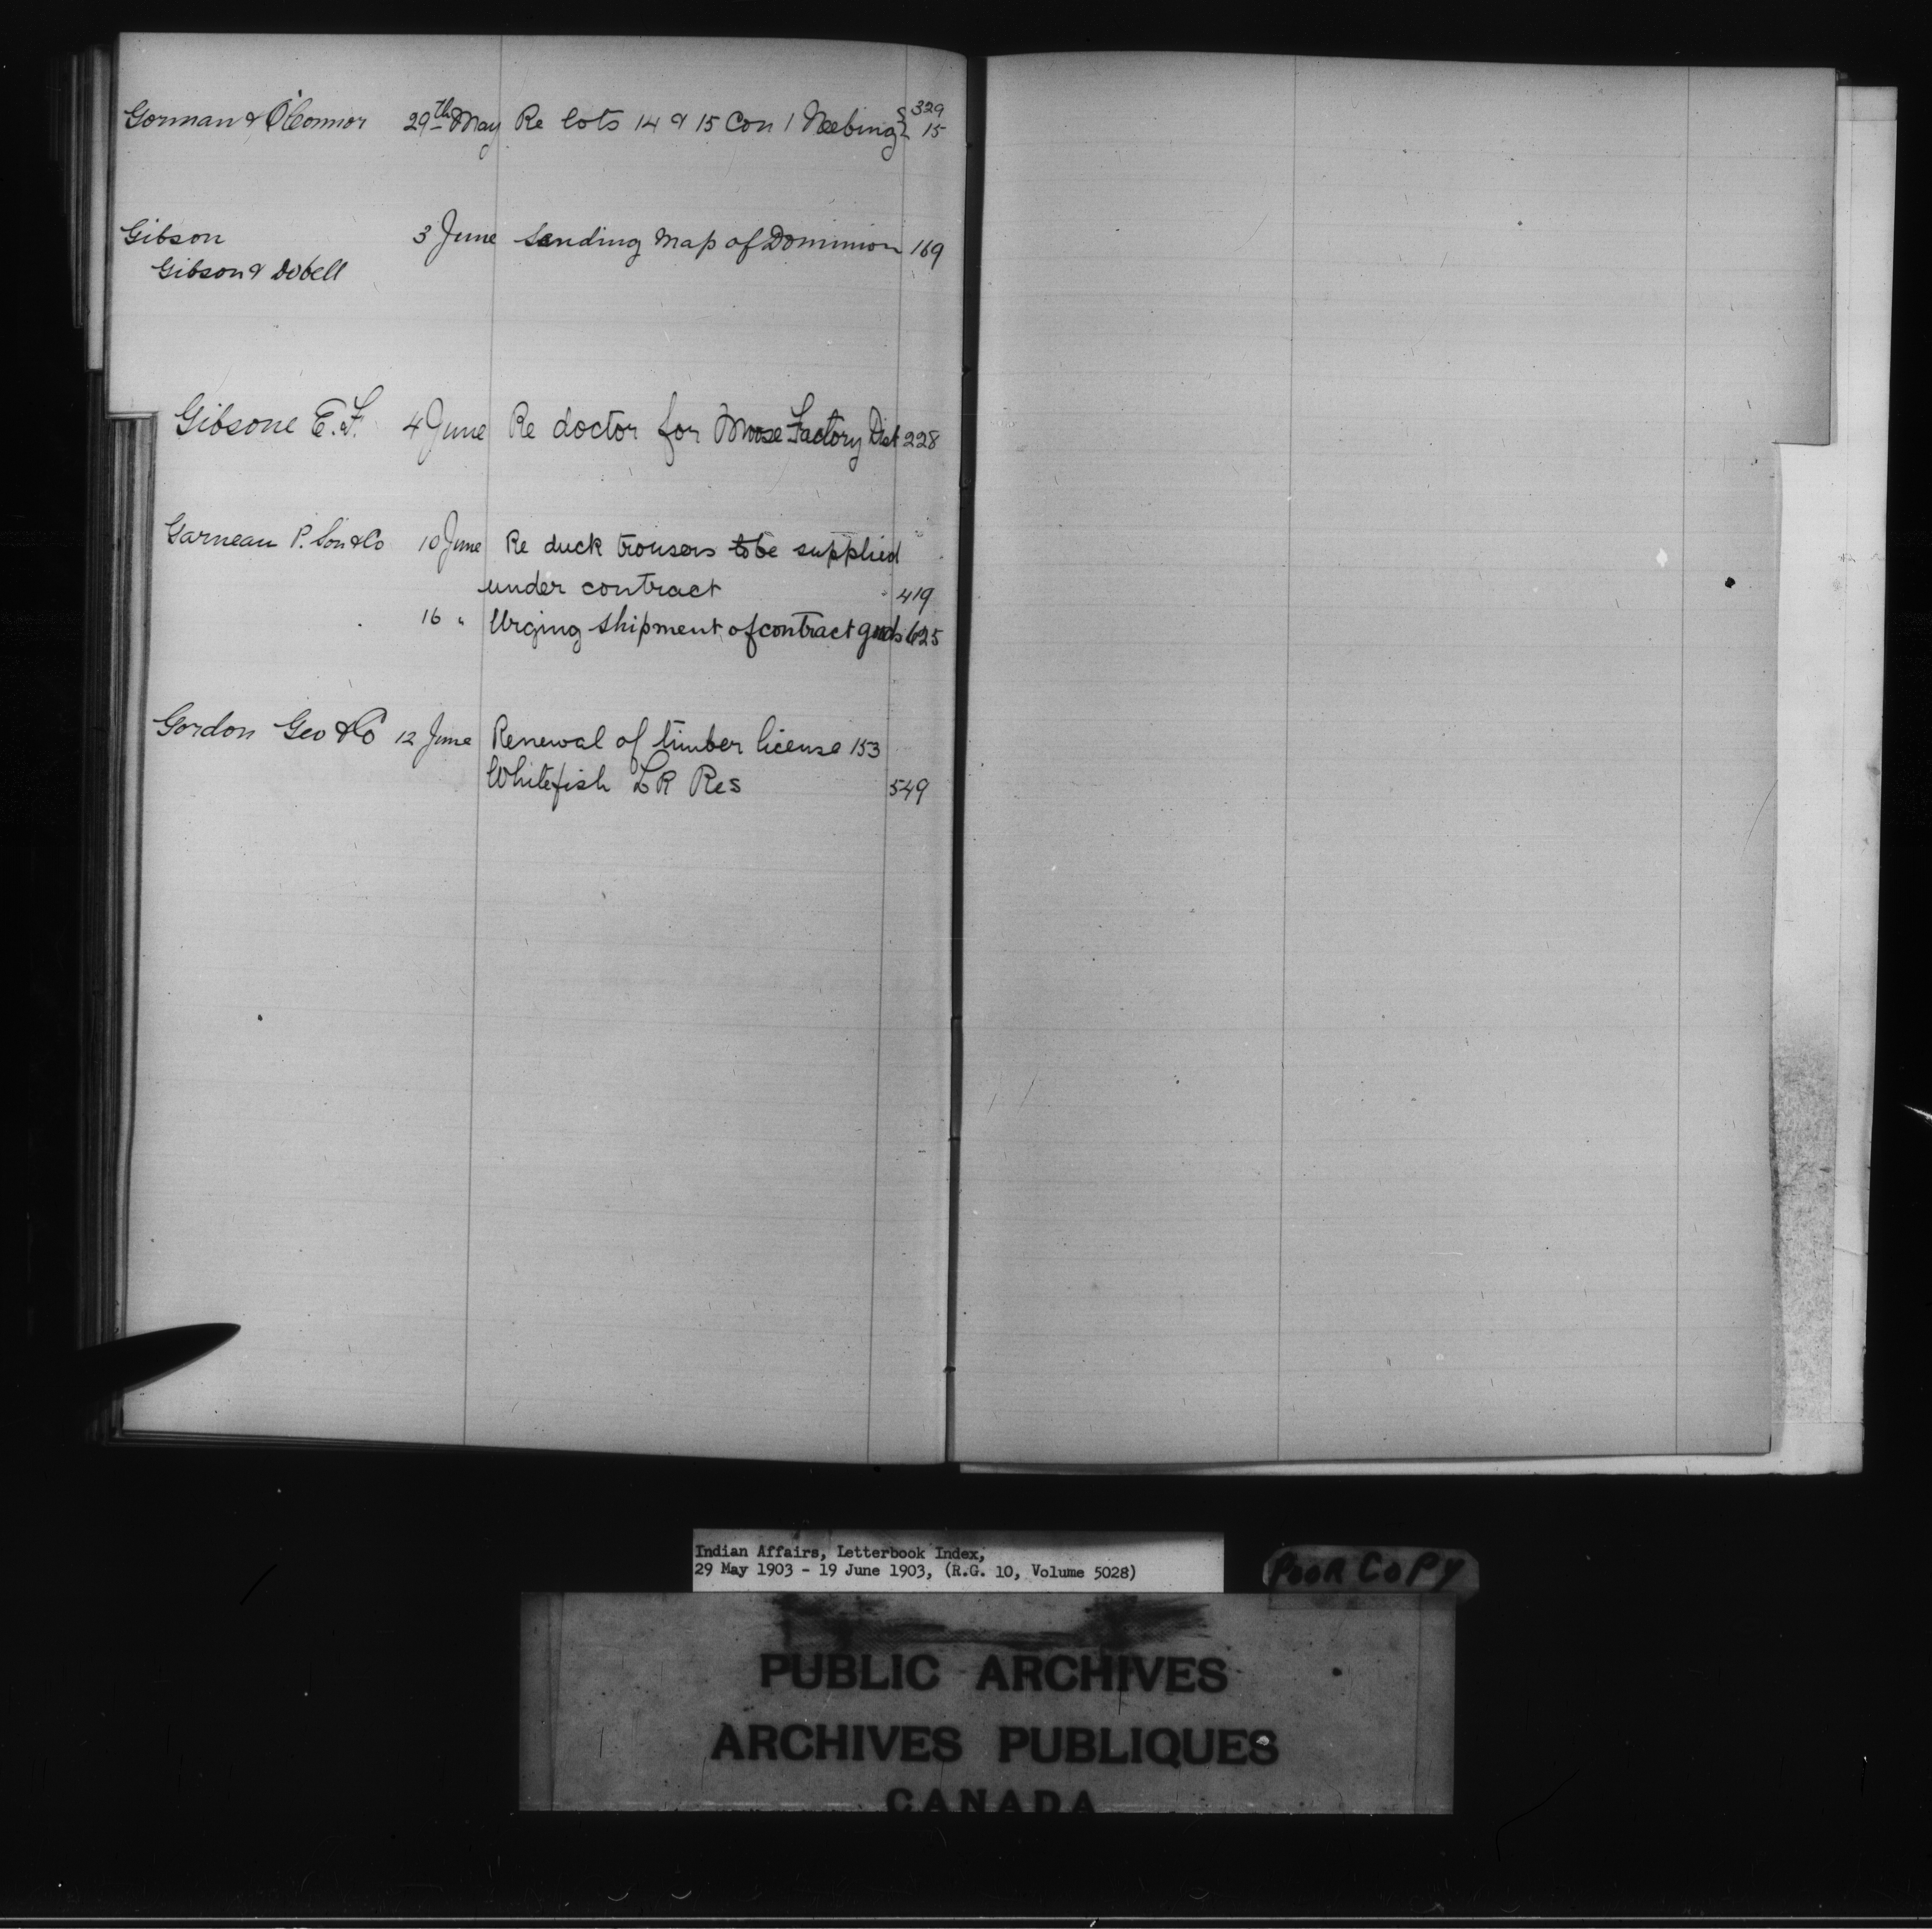 Gorman & O'Connor 29th May Re lots 14 & 15 Con 1 Neebing { 329
15
Gibson 3 June Sending map of Dominion 169
Gibson & Dobell
Gibsone E.F. 4 June Re doctor for Moose Factory Dist 228
Garneau P. Son & Co 10 June Re duck trousers to be supplied
under contract 419
16 " Urging shipment of contract goods 625
Gordon Geo & Co 12 June Renewal of timber license 153
Whitefish L R Res 549
Indian Affairs, Letterbook Index,
29 May 1903 - 19 June 1903, (R.G. 10, Volume 5028)
POOR COPY
PUBLIC ARCHIVES
ARCHIVES PUBLIQUES
CANADA